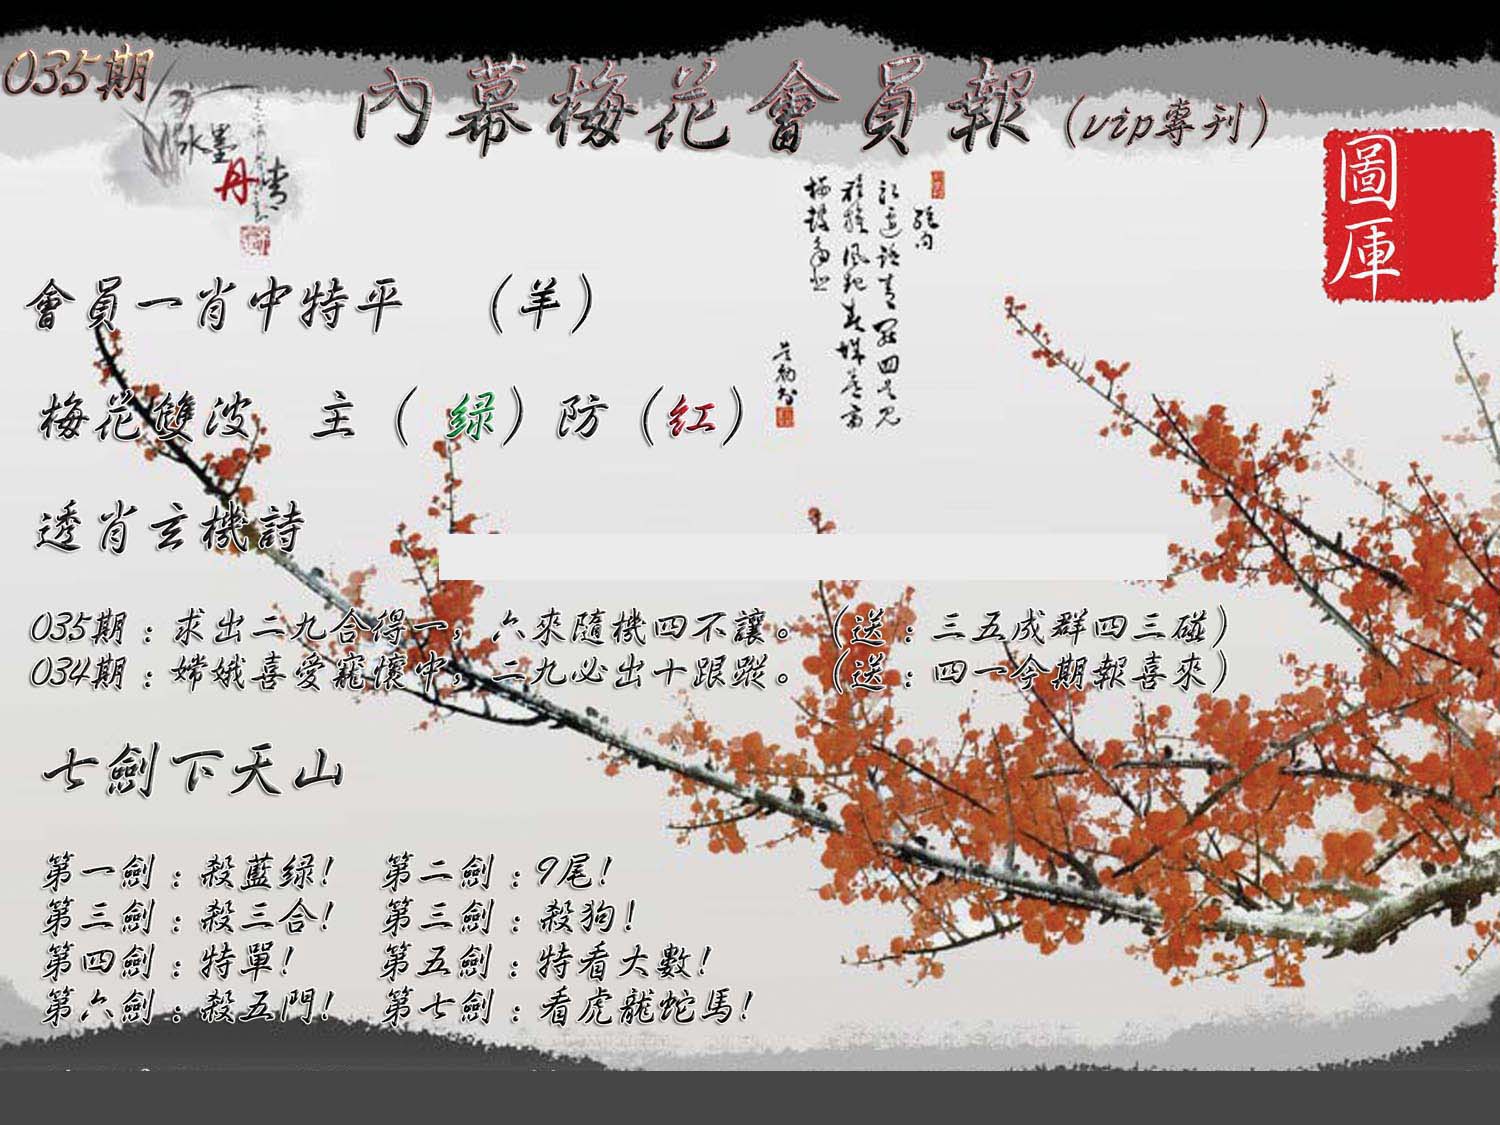 035期
內幕梅花會員報（vip專刊）
水墨
丹青
圖庫
會員一肖中特平　（羊）
梅花雙波　主（绿）防（红）
透肖玄機詩
035期：求出二九合得一，六來隨機四不讓。（送：三五成群四三碰）
034期：嫦娥喜愛寵懷中，二九必出十跟蹤。（送：四一今期報喜來）
七劍下天山
第一劍：殺藍绿！　第二劍：9尾！
第三劍：殺三合！　第三劍：殺狗！
第四劍：特單！　第五劍：特看大數！
第六劍：殺五門！　第七劍：看虎龍蛇馬！